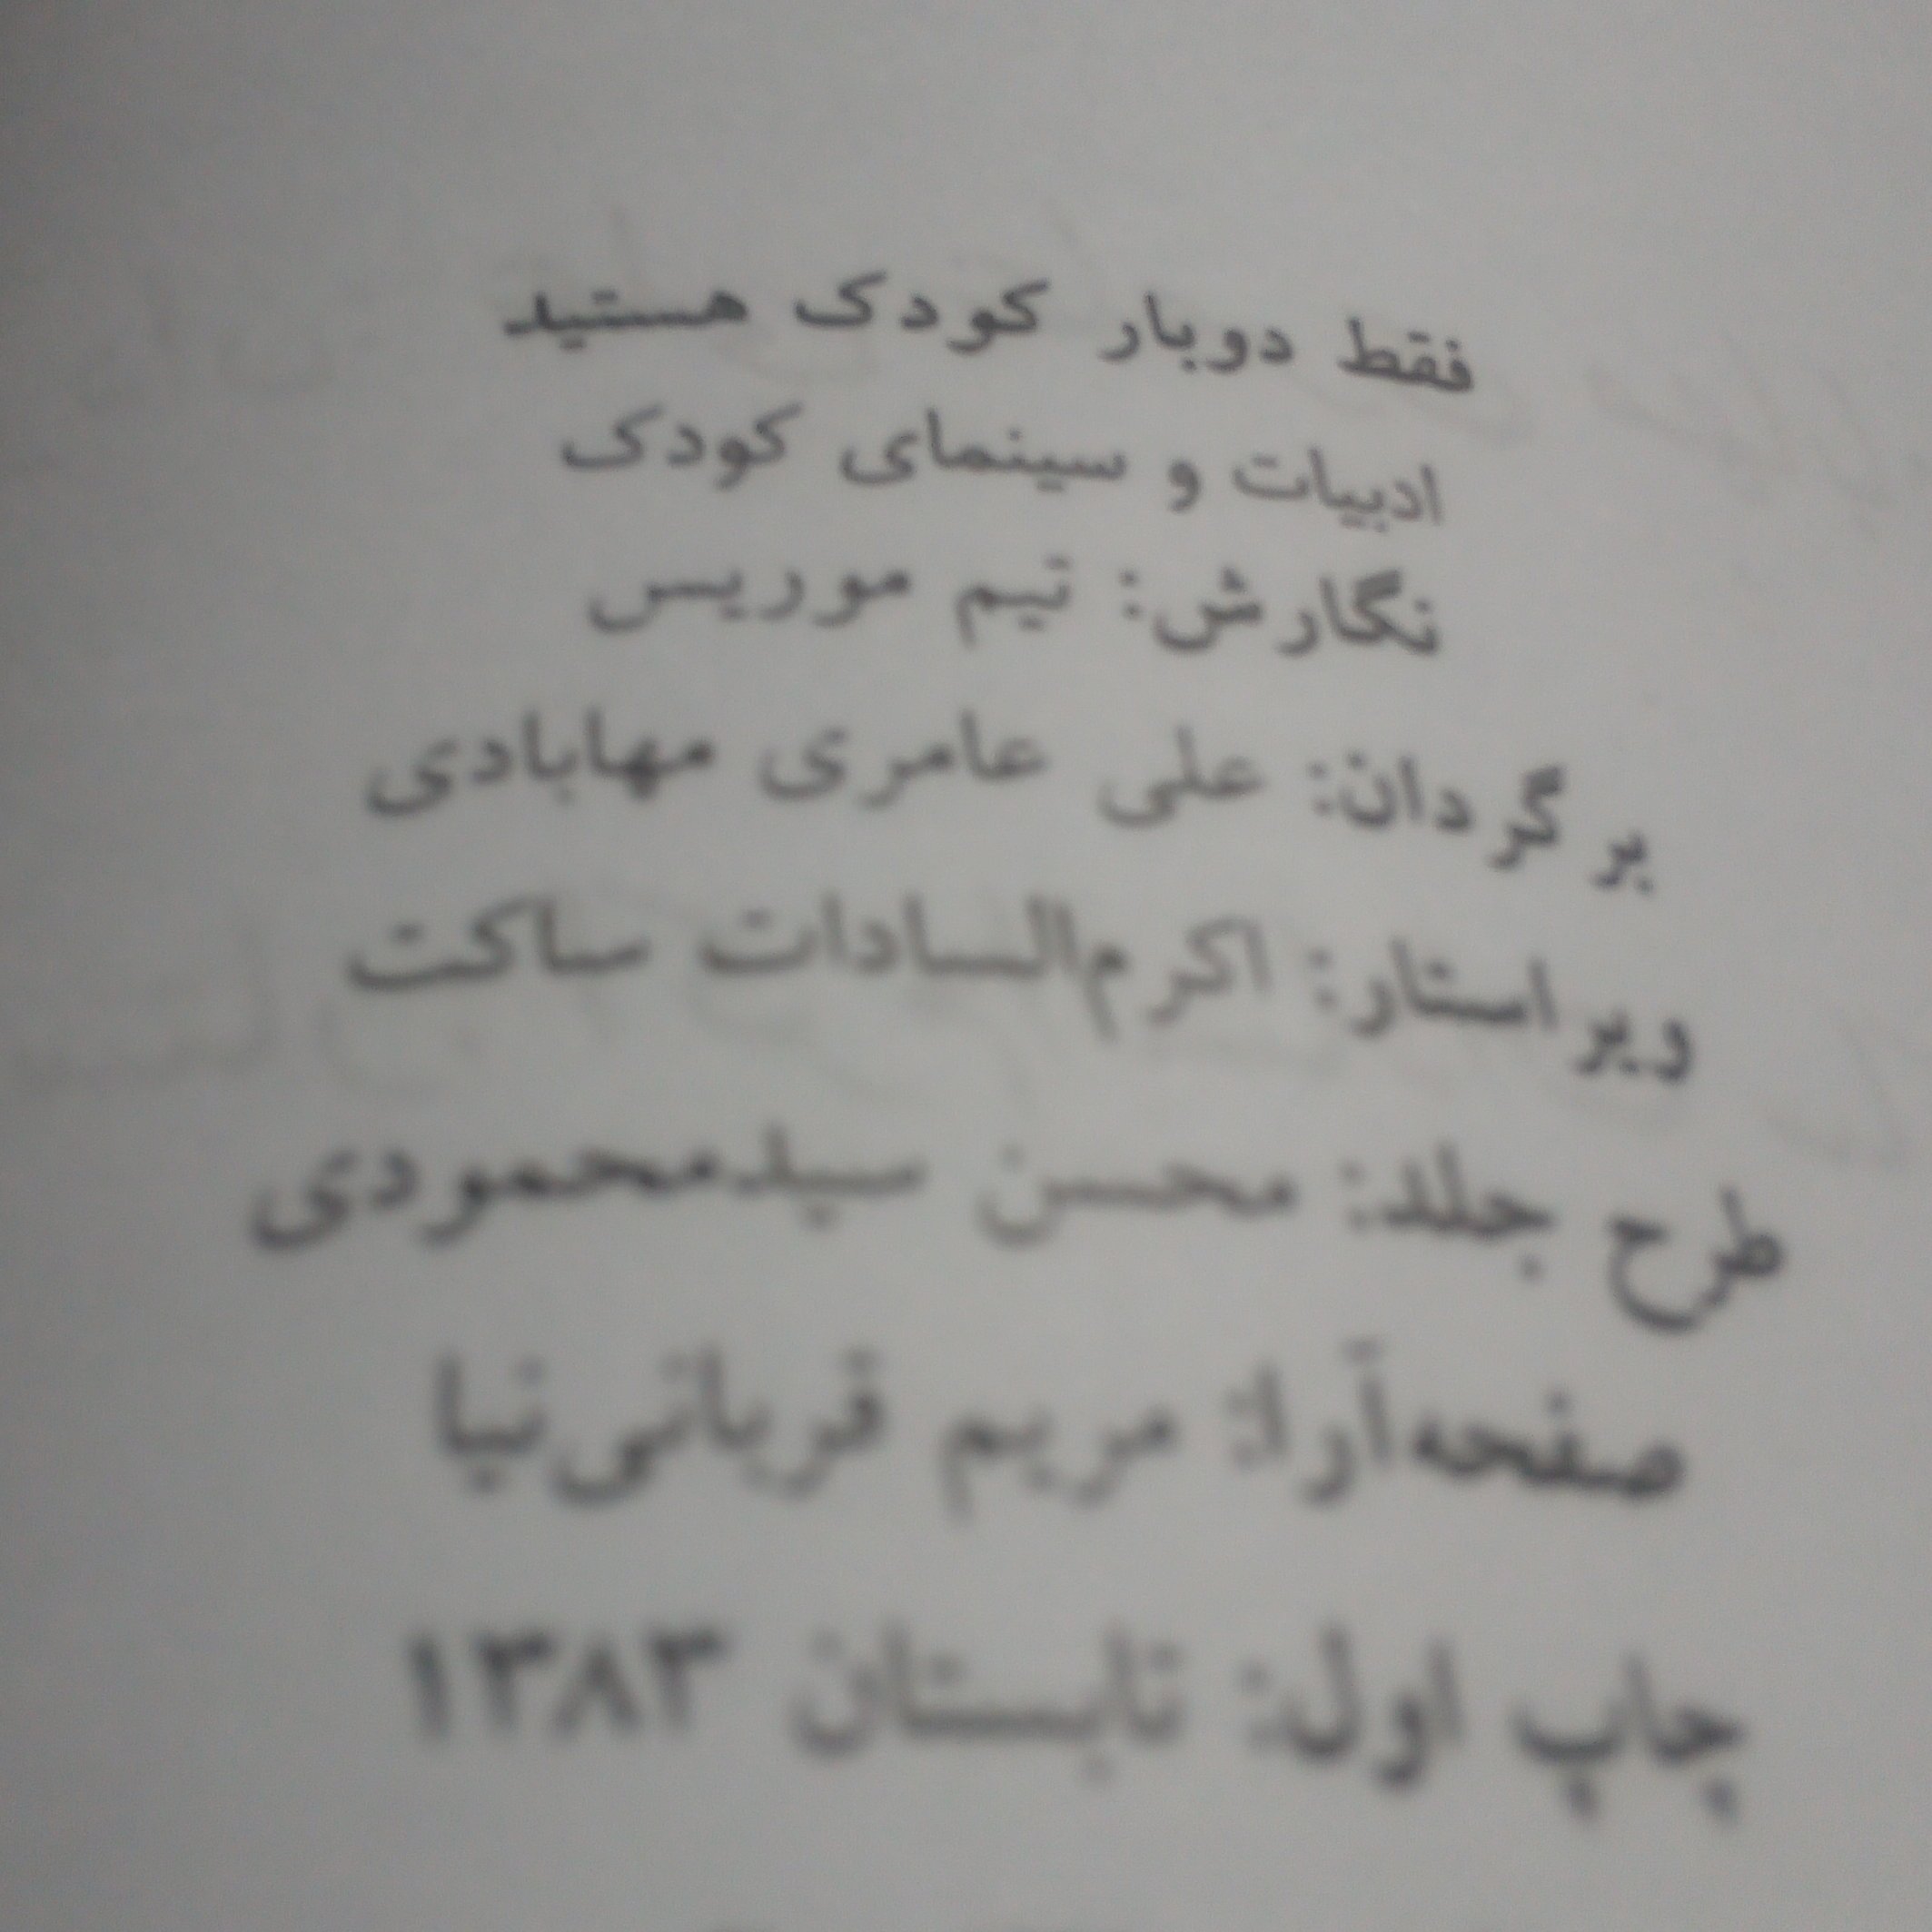 فقط دوبار کودک هستید
ادبیات و سینمای کودک
نگارش: تیم موریس
برگردان: علی عامری مهابادی
ویراستار: اکرم‌السادات ساکت
طرح جلد: محسن سیدمحمودی
صفحه‌آرا: مریم قربانی‌نیا
چاپ اول: تابستان ۱۳۸۳